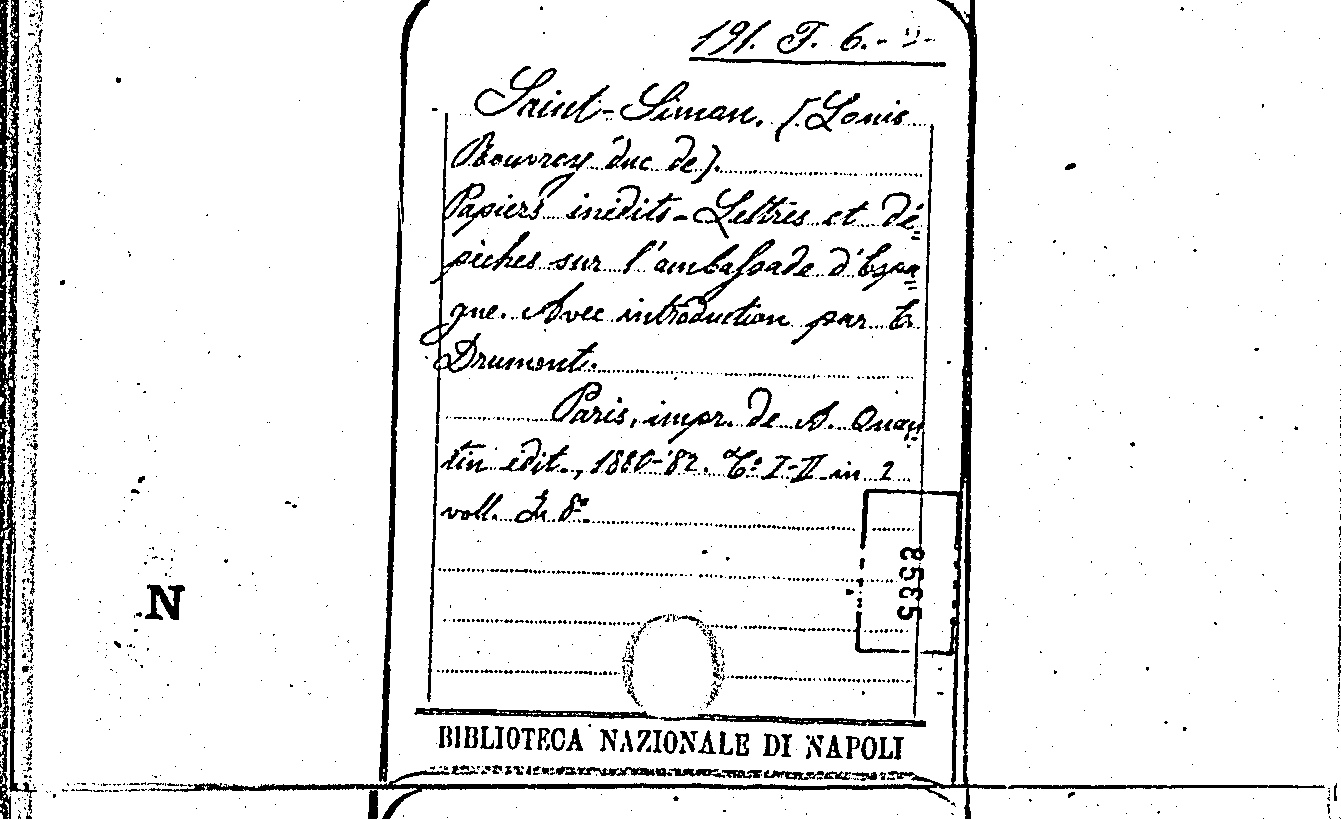 191. F. 6.- 2-
Saint-Simon. (Louis
Rouvroy duc de).
Papiers inédits-Lettres et dé=
pêches sur l'ambassade d'Espa=
gne. Avec introduction par E.
Drumont.
Paris, impr. de A. Quan=
tin édit., 1880-82. Tº I-II in 2
voll. In 8º.
5358
N
BIBLIOTECA NAZIONALE DI NAPOLI